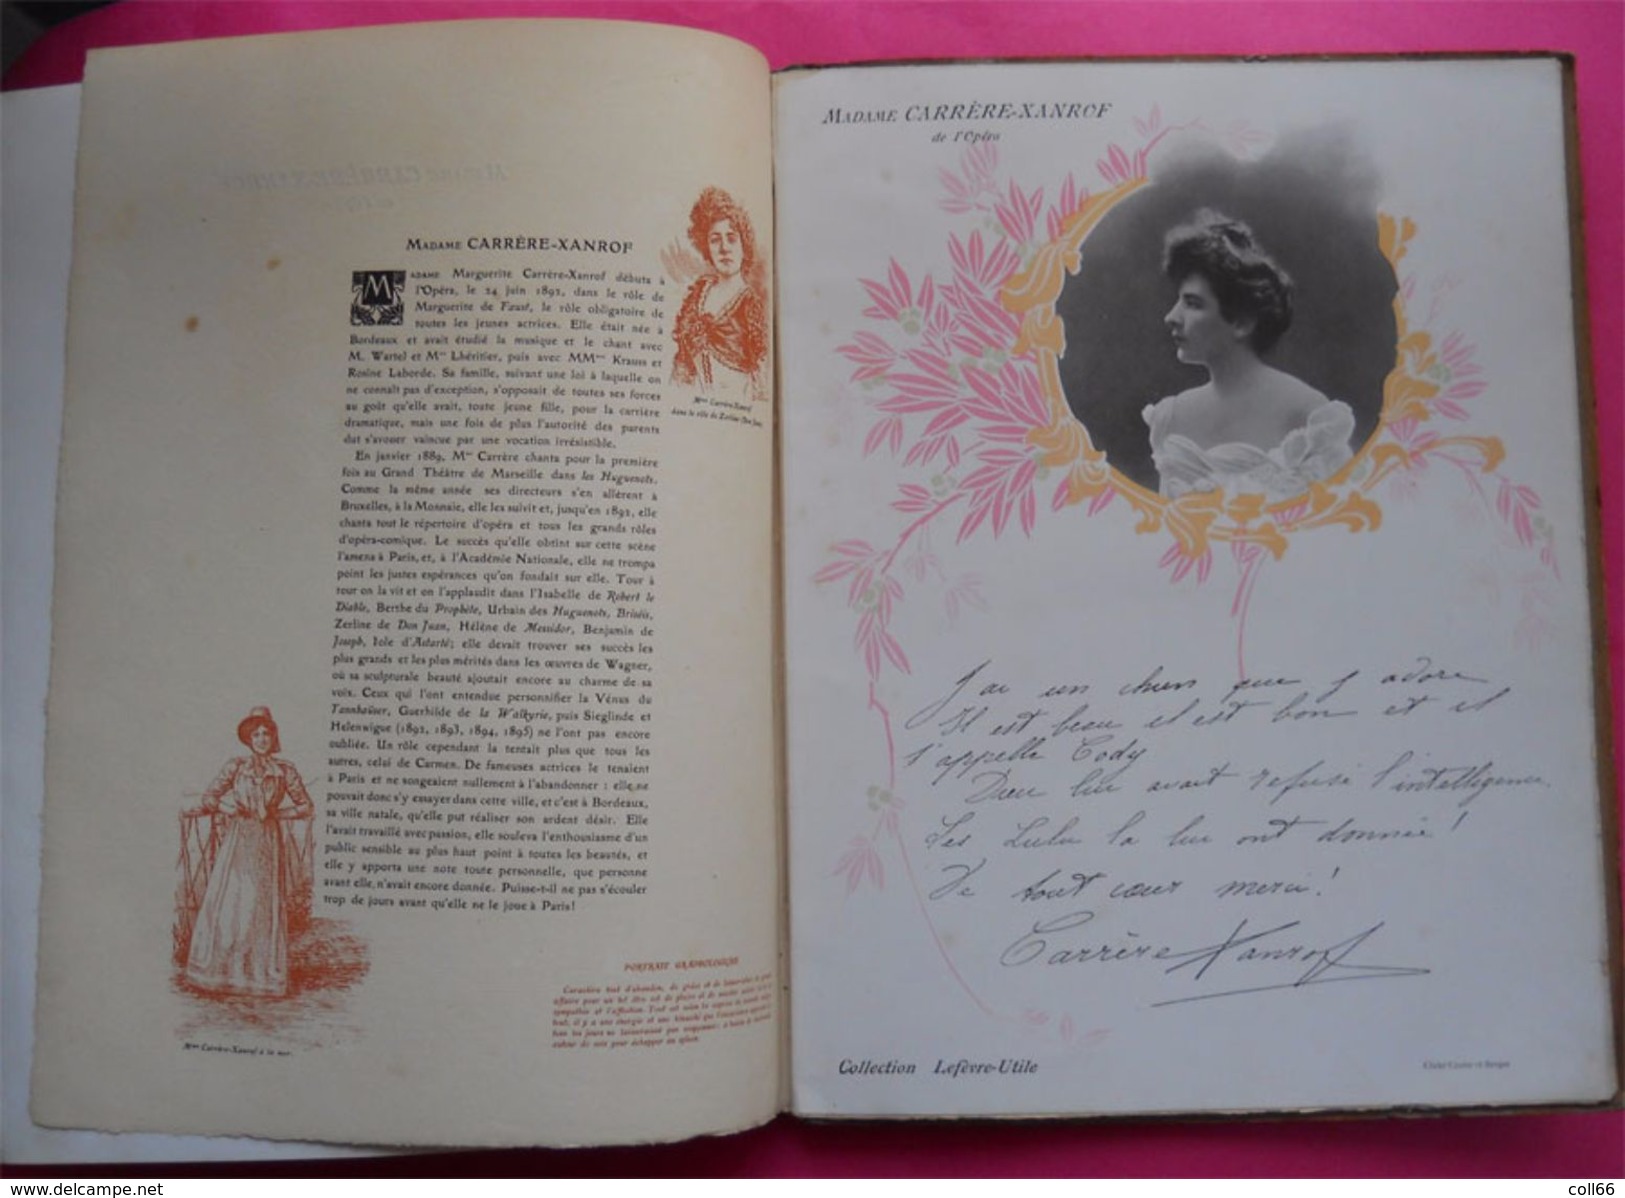 MADAME CARRÈRE-XANROF
MADAME Marguerite Carrère-Xanrof débuta à
l'Opéra, le 24 juin 1892, dans le rôle de
Marguerite de Faust, le rôle obligatoire de
toutes les jeunes actrices. Elle était née à
Bordeaux et avait étudié la musique et le chant avec
M. Wartel et Mme Lhéritier, puis avec MMmes Krauss et
Rosine Laborde. Sa famille, suivant une loi à laquelle on
ne connaît pas d'exception, s'opposait de toutes ses forces
au goût qu'elle avait, toute jeune fille, pour la carrière
dramatique, mais une fois de plus l'autorité des parents
dut s'avouer vaincue par une vocation irrésistible.
En janvier 1889, Mme Carrère chanta pour la première
fois au Grand Théâtre de Marseille dans les Huguenots.
Comme la même année ses directeurs s'en allèrent à
Bruxelles, à la Monnaie, elle les suivit et, jusqu'en 1892, elle
chanta tout le répertoire d'opéra et tous les grands rôles
d'opéra-comique. Le succès qu'elle obtint sur cette scène
l'amena à Paris, et, à l'Académie Nationale, elle ne trompa
point les justes espérances qu'on fondait sur elle. Tour à
tour on la vit et on l'applaudit dans l'Isabelle de Robert le
Diable, Berthe du Prophète, Urbain des Huguenots, Briséis,
Zerline de Don Juan, Hélène de Messidor, Benjamin de
Joseph, Iole d'Astarté; elle devait trouver ses succès les
plus grands et les plus mérités dans les œuvres de Wagner,
où sa sculpturale beauté ajoutait encore au charme de sa
voix. Ceux qui l'ont entendue personnifier la Vénus du
Tannhaüser, Guerhilde de la Walkyrie, puis Sieglinde et
Helenwigue (1892, 1893, 1894, 1895) ne l'ont pas encore
oubliée. Un rôle cependant la tentait plus que tous les
autres, celui de Carmen. De fameuses actrices le tenaient
à Paris et ne songeaient nullement à l'abandonner : elle ne
pouvait donc s'y essayer dans cette ville, et c'est à Bordeaux,
sa ville natale, qu'elle put réaliser son ardent désir. Elle
l'avait travaillé avec passion, elle souleva l'enthousiasme d'un
public sensible au plus haut point à toutes les beautés, et
elle y apporta une note toute personnelle, que personne
avant elle, n'avait encore donnée. Puisse-t-il ne pas s'écouler
trop de jours avant qu'elle ne le joue à Paris!
Mme Carrère-Xanrof
dans le rôle de Zerline (Don Juan)
Mme Carrère-Xanrof à la mer.
PORTRAIT GRAPHOLOGIQUE
Caractère tout d'abandon, de grâce et de
affaire pour un tel être est de plaire et de
sympathie et l'affection. Tout est selon le caprice du
tout, il y a une énergie et une
tous les jours ne laisseraient pas supposer
autour de soi pour échapper au spleen.
MADAME CARRÈRE-XANROF
de l'Opéra
J'ai un chien que j'adore
Il est beau il est bon et il
s'appelle Cody
Dieu lui avait refusé l'intelligence.
Les Lulu la lui ont donnée!
De tout cœur merci!
Carrère Xanrof
Collection Lefèvre-Utile
www.delcampe.net
coll66